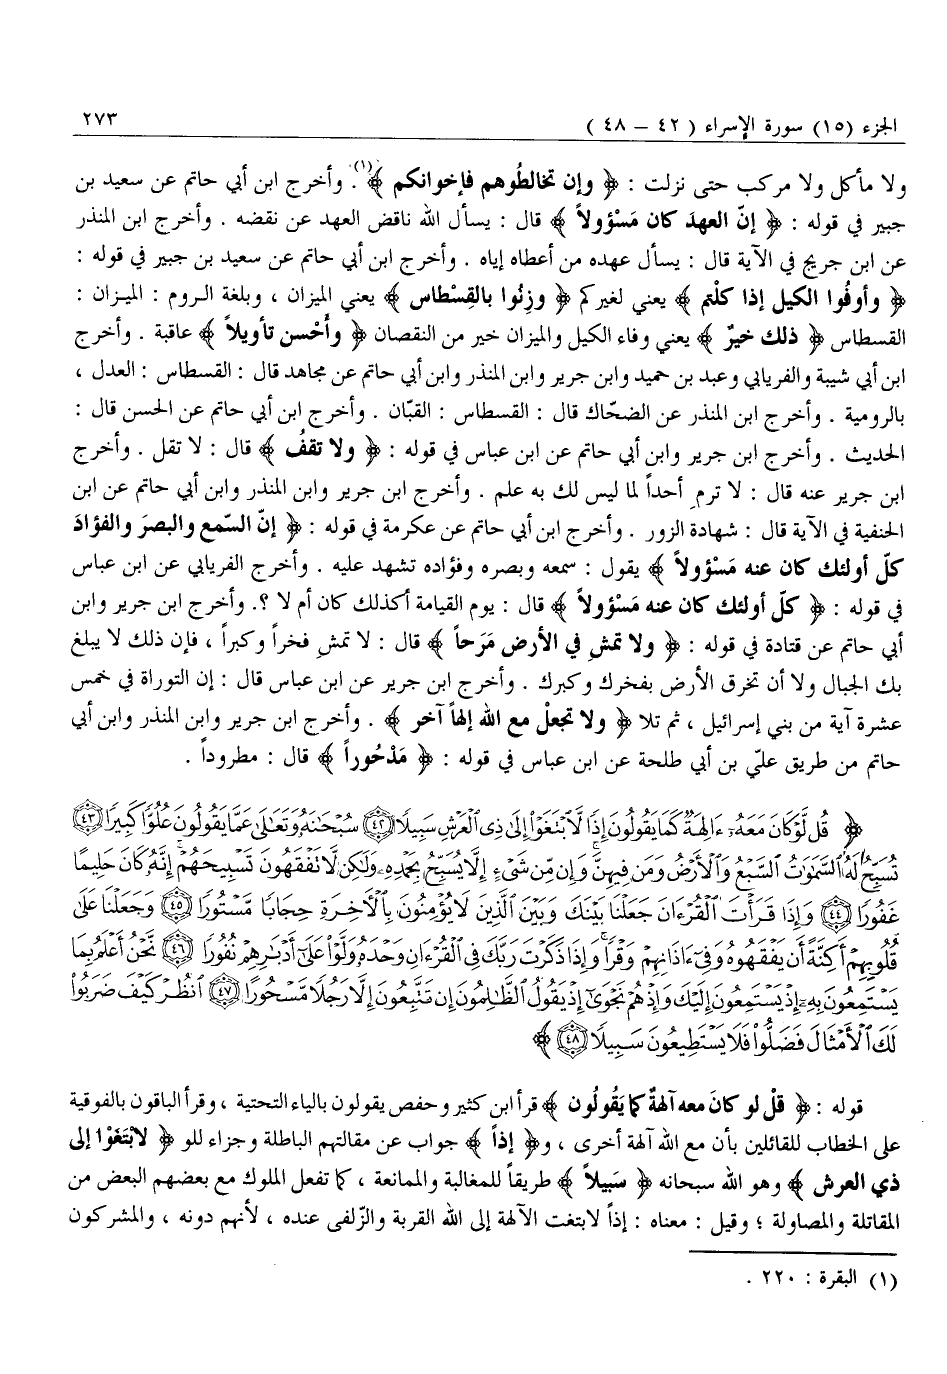 الجزء (١٥) سورة الإسراء ( ٤٢ – ٤٨ ) ٢٧٣
ولا مأكل ولا مركب حتى نزلت : ﴿ وإن تخالطُوهم فإخوانكم ﴾(١). وأخرج ابن أبي حاتم عن سعيد بن
جبير في قوله : ﴿ إنّ العهدَ كان مَسْؤولاً ﴾ قال : يسأل الله ناقض العهد عن نقضه . وأخرج ابن المنذر
عن ابن جريج في الآية قال : يسأل عهده من أعطاه إياه . وأخرج ابن أبي حاتم عن سعيد بن جبير في قوله :
﴿ وأوفُوا الكيل إذا كلْتم ﴾ يعني لغيركم ﴿ وزِنُوا بالقِسْطاس ﴾ يعني الميزان ، وبلغة الروم : الميزان :
القسطاس ﴿ ذلك خيرٌ ﴾ يعني وفاء الكيل والميزان خير من النقصان ﴿ وأَحْسن تأويلاً ﴾ عاقبة . وأخرج
ابن أبي شيبة والفريابي وعبد بن حميد وابن جرير وابن المنذر وابن أبي حاتم عن مجاهد قال : القسطاس : العدل ،
بالرومية . وأخرج ابن المنذر عن الضحّاك قال : القسطاس : القبّان . وأخرج ابن أبي حاتم عن الحسن قال :
الحديث . وأخرج ابن جرير وابن أبي حاتم عن ابن عباس في قوله : ﴿ ولا تقفُ ﴾ قال : لا تقل . وأخرج
ابن جرير عنه قال : لا ترمِ أحداً لما ليس لك به علم . وأخرج ابن جرير وابن المنذر وابن أبي حاتم عن ابن
الحنفية في الآية قال : شهادة الزور . وأخرج ابن أبي حاتم عن عكرمة في قوله : ﴿ إنّ السّمع والبصَر والفؤادَ
كلّ أولئك كان عنه مَسْؤولاً ﴾ يقول : سمعه وبصره وفؤاده تشهد عليه . وأخرج الفريابي عن ابن عباس
في قوله : ﴿ كلّ أولئك كان عنه مَسْؤولاً ﴾ قال : يوم القيامة أكذلك كان أم لا ؟. وأخرج ابن جرير وابن
أبي حاتم عن قتادة في قوله : ﴿ ولا تمشِ في الأرض مَرَحاً ﴾ قال : لا تمشِ فخراً وكبراً ، فإن ذلك لا يبلغ
بك الجبال ولا أن تخرق الأرض بفخرك وكبرك . وأخرج ابن جرير عن ابن عباس قال : إن التوراة في خمس
عشرة آية من بني إسرائيل ، ثم تلا ﴿ ولا تجعلْ مع الله إلهاً آخر ﴾ . وأخرج ابن جرير وابن المنذر وابن أبي
حاتم من طريق عليّ بن أبي طلحة عن ابن عباس في قوله : ﴿ مَدْحُوراً ﴾ قال : مطروداً .
﴿ قُل لَّوْ كَانَ مَعَهُۥٓ ءَالِهَةٌ كَمَا يَقُولُونَ إِذًا لَّٱبْتَغَوْا۟ إِلَىٰ ذِى ٱلْعَرْشِ سَبِيلًا ٤٢ سُبْحَٰنَهُۥ وَتَعَٰلَىٰ عَمَّا يَقُولُونَ عُلُوًّا كَبِيرًا ٤٣
تُسَبِّحُ لَهُ ٱلسَّمَٰوَٰتُ ٱلسَّبْعُ وَٱلْأَرْضُ وَمَن فِيهِنَّ وَإِن مِّن شَىْءٍ إِلَّا يُسَبِّحُ بِحَمْدِهِۦ وَلَٰكِن لَّا تَفْقَهُونَ تَسْبِيحَهُمْ إِنَّهُۥ كَانَ حَلِيمًا
غَفُورًا ٤٤ وَإِذَا قَرَأْتَ ٱلْقُرْءَانَ جَعَلْنَا بَيْنَكَ وَبَيْنَ ٱلَّذِينَ لَا يُؤْمِنُونَ بِٱلْأَخِرَةِ حِجَابًا مَّسْتُورًا ٤٥ وَجَعَلْنَا عَلَىٰ
قُلُوبِهِمْ أَكِنَّةً أَن يَفْقَهُوهُ وَفِىٓ ءَاذَانِهِمْ وَقْرًا وَإِذَا ذَكَرْتَ رَبَّكَ فِى ٱلْقُرْءَانِ وَحْدَهُۥ وَلَّوْا۟ عَلَىٰٓ أَدْبَٰرِهِمْ نُفُورًا ٤٦ نَّحْنُ أَعْلَمُ بِمَا
يَسْتَمِعُونَ بِهِۦٓ إِذْ يَسْتَمِعُونَ إِلَيْكَ وَإِذْ هُمْ نَجْوَىٰٓ إِذْ يَقُولُ ٱلظَّٰلِمُونَ إِن تَتَّبِعُونَ إِلَّا رَجُلًا مَّسْحُورًا ٤٧ ٱنظُرْ كَيْفَ ضَرَبُوا۟
لَكَ ٱلْأَمْثَالَ فَضَلُّوا۟ فَلَا يَسْتَطِيعُونَ سَبِيلًا ٤٨ ﴾
قوله : ﴿ قلْ لو كانَ معه آلهةٌ كما يَقُولُون ﴾ قرأ ابن كثير وحفص يقولون بالياء التحتية ، وقرأ الباقون بالفوقية
على الخطاب للقائلين بأن مع الله آلهة أخرى ، و﴿ إذاً ﴾ جواب عن مقالتهم الباطلة وجزاء للو ﴿ لابْتَغَوْا إلى
ذي العرش ﴾ وهو الله سبحانه ﴿ سَبيلاً ﴾ طريقاً للمغالبة والممانعة ، كما تفعل الملوك مع بعضهم البعض من
المقاتلة والمصاولة ؛ وقيل : معناه : إذاً لابتغت الآلهة إلى الله القربة والزّلفى عنده ، لأنهم دونه ، والمشركون
(١) البقرة : ٢٢٠ .